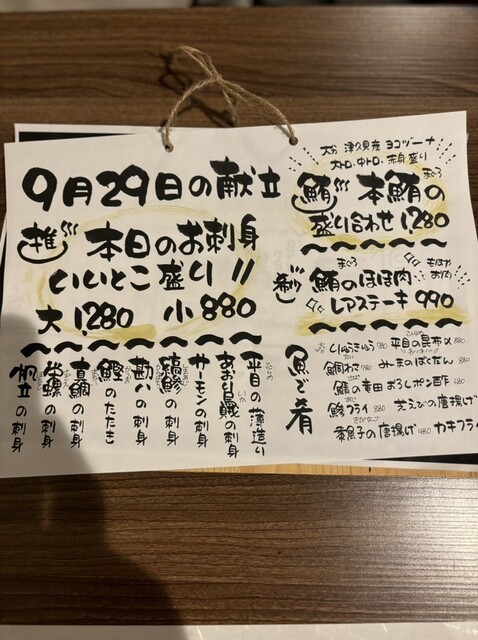 9月29日の献立
推し 本日のお刺身
いいとこ盛り
大1,280 小880
平目の薄造り
あおり烏賊の刺身
サーモンの刺身
真鯵の刺身
勘八の刺身
鰹のたたき
真鯛の刺身
栄螺の刺身
帆立の刺身
大分 津久見産 ヨコヅーナ
大トロ・中トロ・赤身盛り
鮪 本鮪の
盛り合わせ 1,280
鮪のほほ肉
レアステーキ 990
魚で肴
りゅうきゅう 平目の昆布〆 880
鯛わさ
鯖の竜田おろしポン酢 580
鯵フライ 880 芝えびの唐揚げ
唐揚げ 480 カキフライ